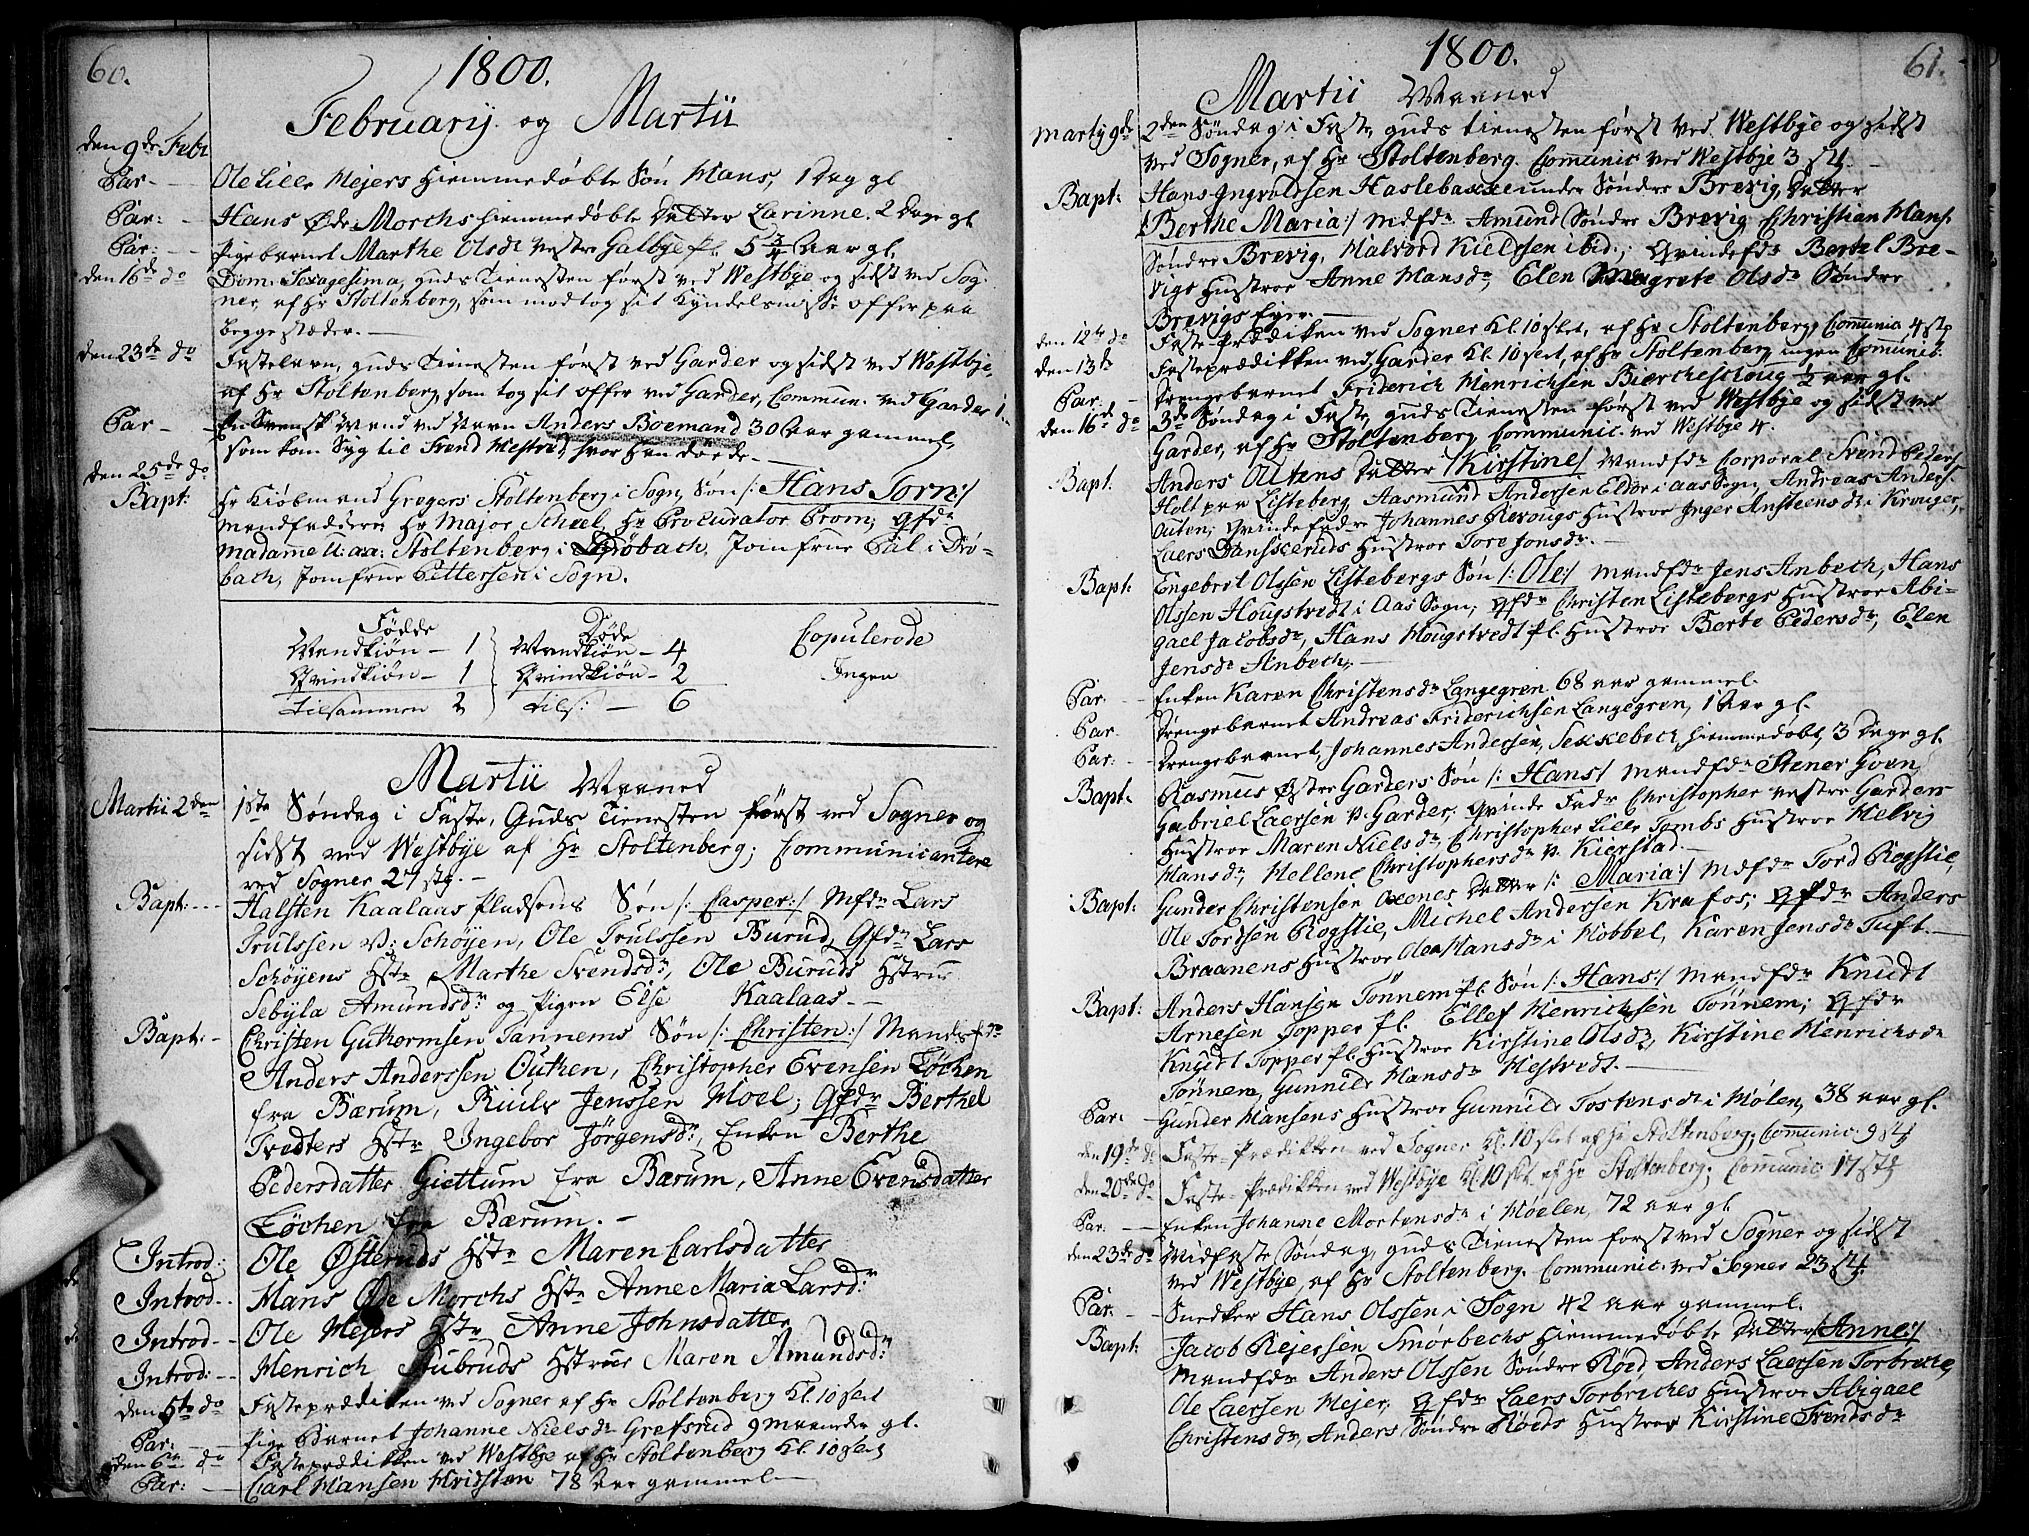 60.
1800.
February og Martii
den 9de Febr
Par - Ole Lille Mejers hiemmedøbte Søn Hans, 1 Dag gl
Par: Hans Øde Morchs hiemmedøbte Datter Larinne. 2 Dage gl
Par: - Pigebarnet Marthe Olsdr Vestre Galbye pl. 5 3/4 Aar gl.
den 16de do Dom: Sexagesima, Guds Tienesten først ved Westbye og sidst ved Sog-
ner, af Hr Stoltenberg, som modtog sit Kyndelsmisse offer paa
begge stæder. -
den 23de do Fastelavn, Guds Tienesten først ved Garder og sidst ved Westbye,
af Hr Stoltenberg, som tog sit offer ved Garder, Commun. ved Garder 1.
Par - En Svensk Mand ved Navn Anders Boemand 30 Aar gammel,
som kom Syg til Svend Westved, hvor han døde. -
den 25de do
Bapt: Hr Kiøbmand Gregers Stoltenberg i Sogn, Søn /: Hans Torn:/
Mandfaddere Hr Major Scheel, Hr Procurator Prom; Qfdr
Madamme U: aa: Stoltenberg i Drøbach, Jomfrue Bäl i Drø-
bach, Jomfrue Pettersen i Sogn.
Fødde Døde Copulerede
Mandkiøn - 1 Mandkiøn - 4 Ingen
Qvindkiøn - 1 Qvindkiøn - 2
Tilsammen 2 Tils: - 6
Martii Maaned
Martii 2den 1ste Søndag i Faste, Guds Tienesten først ved Sogner og
sidst ved Westbye af Hr Stoltenberg; Communicantere
ved Sogner 27 stk. -
Bapt: - Halsten Kaalaas pladsens Søn /: Casper:/ Mfdr Lars
Trulssen V: Schøyen, Ole Trulssen Burud, Qfdr Lars
Schøyens Hstr Marthe Svendsdr, Ole Buruds Hstrue
Sebyla Amundsdr og Pigen Else Kaalaas. -
Bapt: - Christen Guttormsen Tannems Søn /: Christen:/ Mandsfdr
Anders Anderssen Outhen, Christopher Evensen Løchen
fra Bærum, Ruils Jenssen Hoel; Qfdr Berthel
Tvedters Hstr Ingebor Jørgensdr, Enken Berthe
Pedersdatter Giettum fra Bærum, Anne Evensdatter
Løchen fra Bærum. -
Introd: Ole Østeruds Hstr Maren Carlsdatter
Introd - Hans Øde Morchs Hstr Anne Maria Larsdr
Introd - Ole Mejers Hstr Anne Johnsdatter
Introd: - Henrich Stubruds Hstrue Maren Amundsdr
den 5te do Fasteprædiken ved Sogner af Hr Stoltenberg Kl. 10 slet
Par: - Pige Barnet Johanne Nielsdr Grefsrud 9 Maaneder gl.
den 6te do Fasteprædikken ved Westbye af Hr Stoltenberg Kl. 10 slet
Par: - Carl Hansen Hvidsten 78 Aar gammel -
61.
1800.
Martii Maaned
Marty 9de 2den Søndag i Faste, Guds Tienesten først ved Westbye og sidst
ved Sogner, af Hr Stoltenberg. Communic ved Westbye 3 stk.
Bapt: Hans Ingvoldsen Haslebakke under Søndre Brevig, Datter
/: Berthe Maria:/ Mdfdr Amund Søndre Brevig, Christian Hans
Søndre Brevig, Halvord Kielssen ibid:; Qvindefdr Berthel Bre-
vigs Hustroe Anne Hansdr, Elen Margrete Olsdr Søndre
Brevigs Eger. -
den 12te do Faste-Prædiken ved Sogner Kl. 10 slet, af Hr Stoltenberg, Communic 4 stk
den 13de Fasteprædikken ved Garder Kl. 10 slet, af Hr Stoltenberg, ingen Communic.
Par. - Drengebarnet Friderich Henrichsen Biercheschoug 1/2 aar gl.
den 16de do 3de Søndag i Faste, Guds Tienesten først ved Westbye og sidst ved
Garder, af Hr Stoltenberg Communic. ved Westbye 4.
Bapt. Anders Outens Datter /Kirstine/ Mandfdr Corporal Svend Peders
Holt paa Listeberg, Aasmund Andersen Eldor i Aas Sogn, Andreas Anders.
Outen; Qvindefadre Johannes Revougs Hustroe Inger Ansteensdr Kronger,
Laers Danskeruds Hustroe Tore Jonsdr. -
Bapt: Engebret Olssen Listebergs Søn /: Ole:/ Mandfdr Jens Anbech, Hans
Olssen Hougstvedt i Aas Sogn; Qfdr Christen Listebergs Hustroe Abi-
gael Jacobsdr, Hans Hougstvedt pl. Hustroe Berte Pedersdr, Elen
Jensdr Anbech. -
Par - Enken Karen Christensdr Langegren 68 aar gammel.
Par - Drengebarnet Andreas Friderichsen Langegren, 1 Aar gl.
Par: - Drengebarnet, Johannes Andersen, Sekkebech, hiemmedøbt, 3 Dage gl.
Bapt: Rasmus Østre Garders Søn /: Hans/ Mandfdr Stener Goen,
Gabriel Laersen V. Garder; Qvinde Fadr Christopher Vestre Garders
Hustroe Maren Nielsdr, Christopher Lille Tombs Hustroe Helvig
Hansdr, Hellene Christophersdr V. Kierstad. -
Bapt: Gunder Christensen Oxenes Datter /: Maria:/ Mdfdr Tord Rogslie,
Ole Tordsen Rogslie, Michel Andersen Krafos; Qfdr Anders
Braanens Hustroe Olea Hansdr i Hobbel, Karen Jensdr Tuft. -
Bapt: Anders Hansen Tønnem pl. Søn /: Hans:/ Mandfdr Knudt
Arnesen Topper pl. Ellef Henrichsen Tønnem; Qfdr
Knudt Topper pl. Hustroe Kirstine Olsdr, Kirstine Henrichsdr
Tønnem, Gunnild Hansdr Hestvedt. -
Par: - Gunder Hansens Hustroe Gunnild Tostensdr i Mølen, 38 aar gl.
den 19de do Faste-Prædikken ved Sogner Kl. 10 slet af Hr Stoltenberg; Communic: 9 stk
den 20de do Faste-Prædikken ved Westbye Kl. 10 slet af Hr Stoltenberg; Communic 17 stk
Par: - Enken Johanne Mortensdr i Møelen, 72 aar gl.
den 23de do Midfaste Søndag, Guds Tienesten først ved Sogner og sidst
ved Westbye, af Hr Stoltenberg. Communic. ved Sogner 23 stk.
Par. - Snedker Hans Olssen i Sogn 42 aar gammel.
Bapt: Jacob Rejersen Smørbechs hiemmedøbte Datter /Anne:/
Mandfdr Anders Olssen Søndre Røed, Anders Laersen Torbreche,
Ole Laersen Mejer, Qfdr Laers Torbreches Hustroe Abigael
Christensdr, Anders Søndre Røeds Hustroe Kirstine Svendsdr